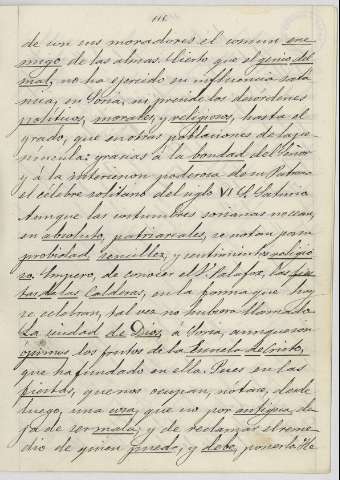 116
de con sus moradores el comun ene
migo de las almas. Cierto que el genio del
mal, no ha ejercido su influencia satá
nica, en Soria, ni preside los desórdenes
políticos, morales, y religiosos, hasta el
grado, que en otras poblaciones de la pe
nincula: gracias á la bondad del Señor
y á la intercesion poderosa de su Patrono
el célebre solitario del siglo VI S. Saturio
Aunque las costumbres sorianas no sean,
en absoluto, patriarcales, se notan por su
probidad, sencillez, y sentimientos religio
so. Empero, de conocer el S. Palafox, las fies
tas de las Calderas, en la forma que hoy
se celebran, tal vez no hubiera llamado
La ciudad de Dios, á Soria, aunque son
ópimos los frutos de la Escuela de Cristo,
que ha fundado en ella. Pues en las
fiestas, que nos ocupan, nótase, desde
luego, una cosa, que no por antigua, de
ja de ser mala, y de reclamar el reme
dio de quien puede, y debe, ponerlo. He